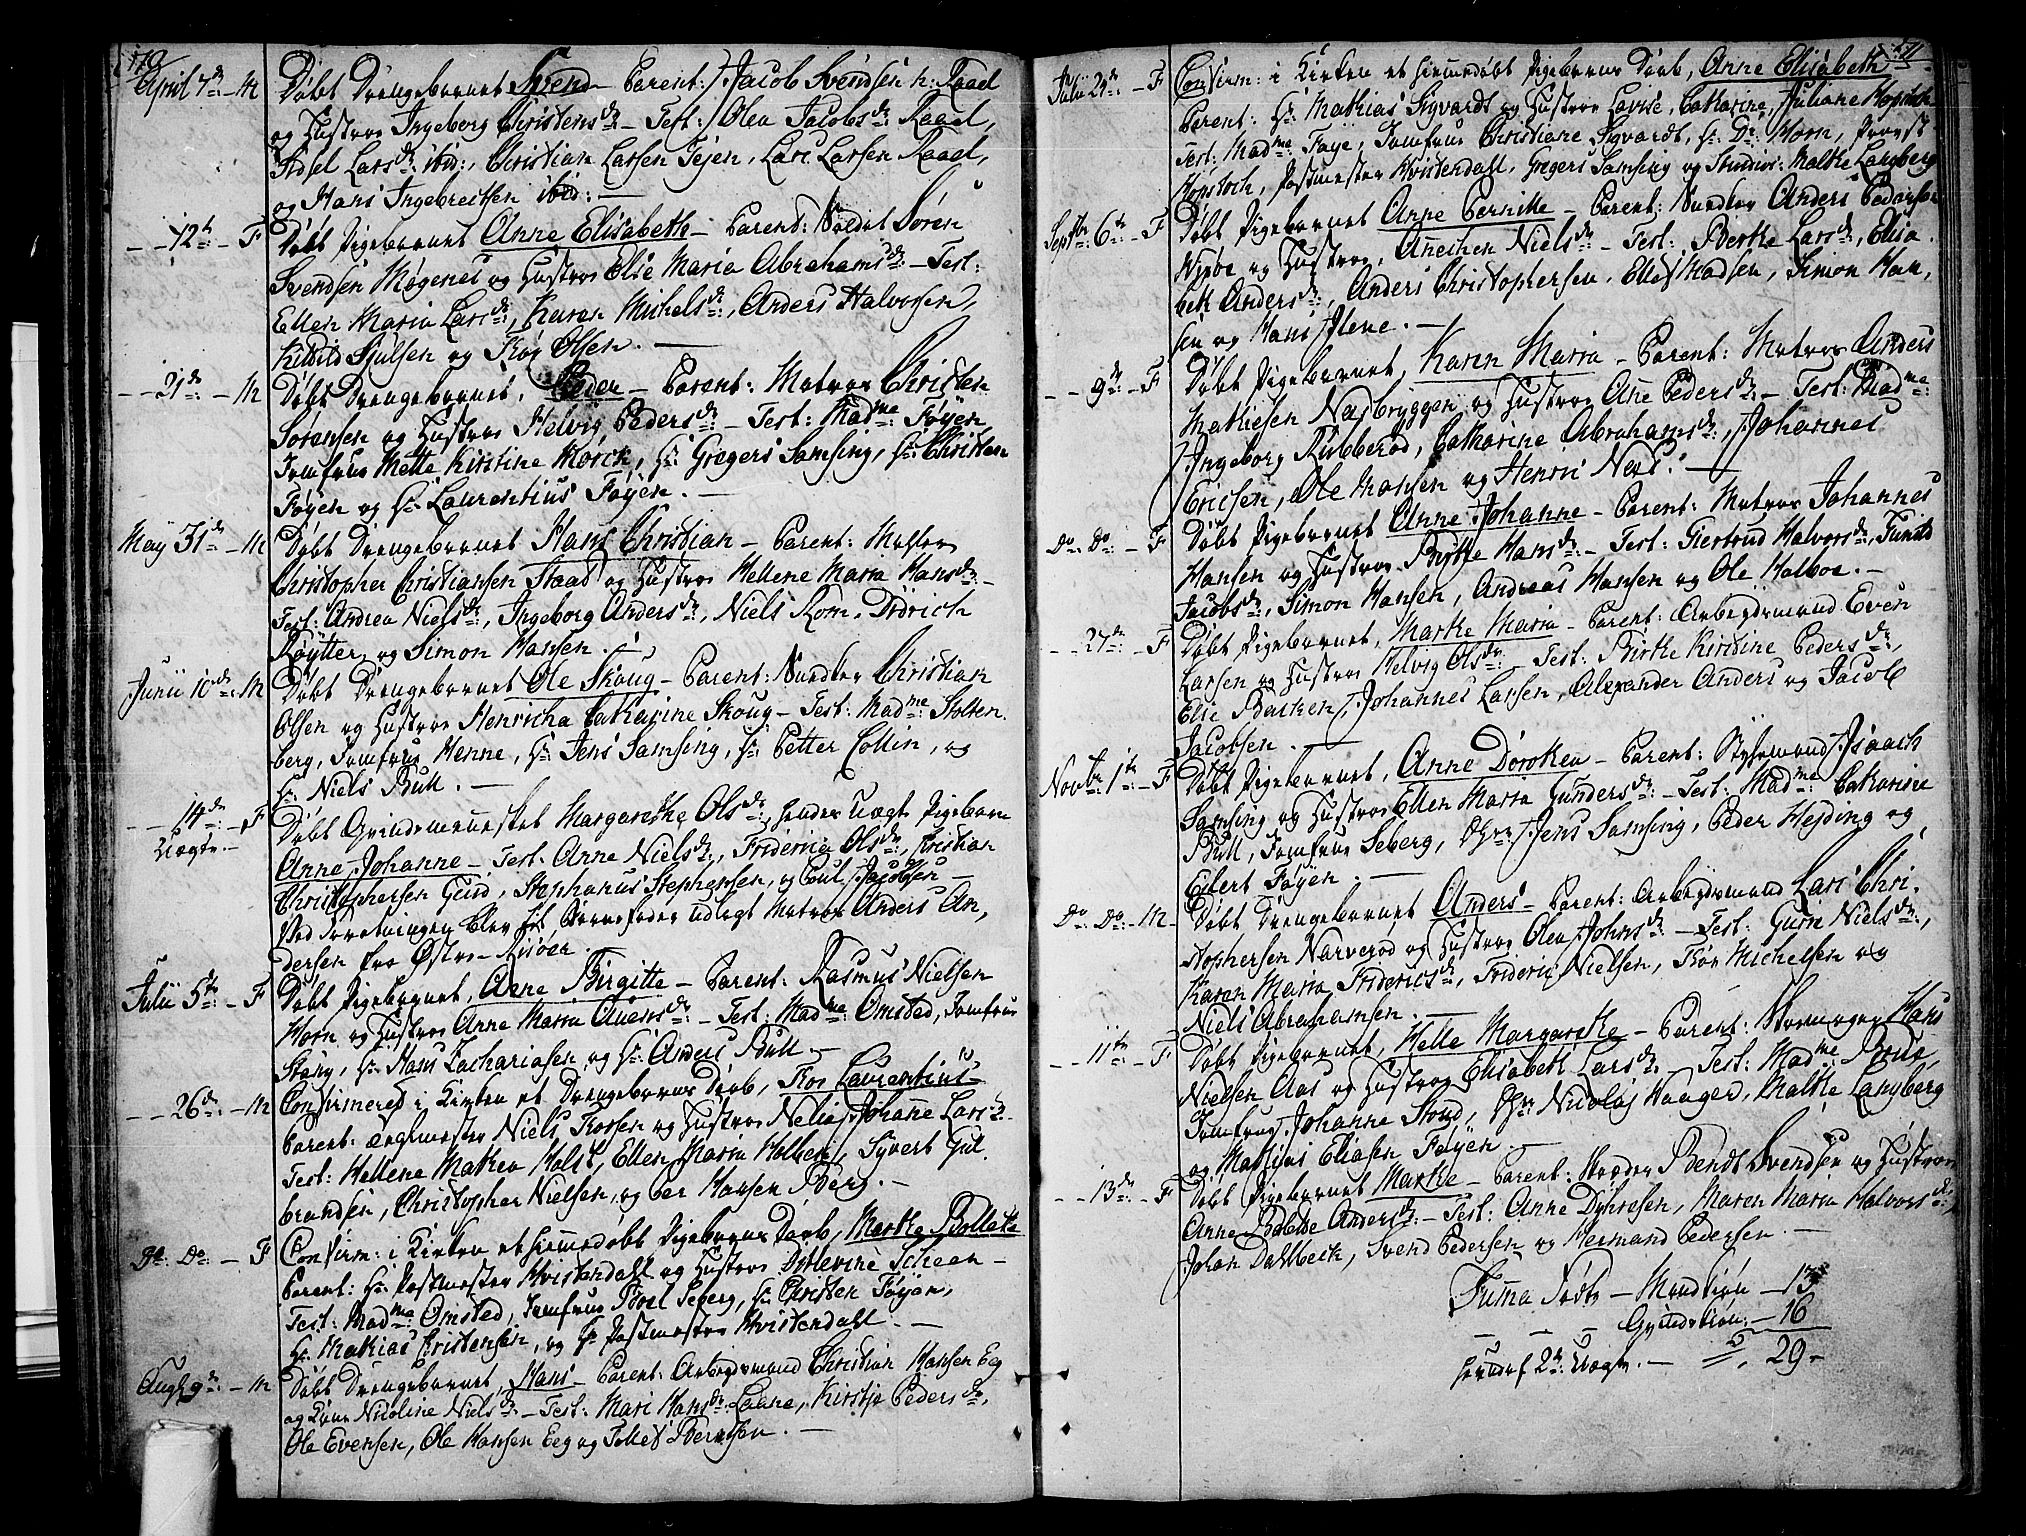 170
April 7de – M Døbt Drengebarnet Svend – Parent: Jacob Svendsen n: Raael
og Hustroe Ingeborg Christensdr – Test: Olea Jacobsdr Raael,
Larsdr ibid:, Christian Larsen Tejen, Lars Larsen Raael,
og Hans Ingebrectsen ibid: –
– 12te – F Døbt Pigebarnet Anne Elisabeth – Parent: Soldat Søren
Svendsen Møgenes og Hustroe Else Maria Abrahamsdr – Test:
Ellen Maria Larsdr, Karen Michelsdr, Anders Halvorsen,
Sjulsen og Thor Olsen. –
– 21de – M Døbt Drengebarnet, Peder – Parent: Matros Christen
Sørensen og Hustroe Helvig Pedersdr – Test: Madme Føyen,
Jomfrue Mette Kirstine Mørch, Hr: Gregers Samsing, Hr: Christen
Føyen og Hr: Laurentius Føyen. –
Maÿ 31de – M Døbt Drengebarnet Hans Christian – Parent:
Christopher Christiansen Staad og Hustroe Hellene Maria Hansdr –
Test: Andrea Nielsdr, Ingeborg Andersdr, Niels Rom, Didrich
Røÿtter og Simon Hansen. –
Junii 10de M Døbt Drengebarnet Ole Skoug – Parent: Christian
Olsen og Hustroe Henricha Catharine Skoug – Test: Madme Stolten
berg, Jomfrue Henne, Hr: Jens Samsing, Hr: Petter Collin, og
Hr: Niels Bull. –
– 14de – F Døbt Qvindemennesket Margarethe Olsdr, hendes Uægte Pigebarn
Uægte. – Anne Johanne – Test: Anne Nielsdr, Friderica Olsdr, Christian
Christophersen Guld, Stephanus Stephensen, og Poul Jacobsen –
Ved Forretningen blev til Barnefader udlagt Matros Anders An,
dersen fra Østre-Riisøer. –
Julii 5te – F Døbt Pigebarnet, Anne Birgitte – Parent: Rasmus Nielsen
Horn og Hustroe Anne Maria Auensdr – Test: Madme Omsted, Jomfrue
Stang, Hr: Hans Zachariasen, og Hr: Anders Bull. –
– 26de – M Confirmered i Kirken et Drengebarns Daab, Thor Laurentius
Parent: Niels Thorsen og Hustroe Nelia Johanne Larsdr
Test: Hellene Mathea Holst, Ellen Maria Holben, Syvert Gul
brandsen, Christopher Nielsen, og Per Hansen Berg. –
Do. Do – F Confirm: i Kirken et hiemmedøbt Pigebarns Daab, Marthe Bollette
Parent: Hr: Postmester Hvistendall og Hustroe Ditlevine Scheen –
Test: Madme Omsted, Jomfrue Boel Seberg, Hr: Christen Føyen,
Hr: Mathias Christensen, og Hr: Postmester Hvistendall. –
Aug. 9de – M Døbt Drengebarnet, Hans – Parent: Arbeidsmand Christian Hansen Eeg
og Kone Nicoline Nielsdr – Test: Mari Hansdr Laane, Kirstje Pedersdr,
Ole Evensen, Ole Hansen Eeg og Tollef Berntsen. –
171
Julii 29de – F Confirm: i Kirken et hiemmedøbt Pigebarns Daab, Anne Elisabeth
Parent: Hr: Mathias Sigvardt og Hustroe Lovise, Catharine, Juliane Hopstoch
Test: Madme Foye, Jomfrue Christiane Sigvardt, Hr: Horn, Provst
Hopstoch, Postmester Hvistendall, Gregers Samsing og Studios: Malthe Langberg
Septbr 6te – F Døbt Pigebarnet Anne Pernille – Parent: Anders Pedersen
Nyboe og Hustroe, Anechen Nielsdr – Test: Berthe Larsdr, Elisa
beth Andersdr, Anders Christophersen, Ellef Madsen, Simon Han,
sen og Hans Flene. –
– 9de – F Døbt Pigebarnet, Karen Maria – Parent: Matros Anders
Mathiesen Næsbryggen og Hustroe Ane Pedersdr – Test: Madme
Ingeborg Rubberød, Catharine Abrahamsdr, Johannes
Ericsen, Ole Hansen og Henric Næs. –
Do: Do: – F Døbt Pigebarnet Anne Johanne – Parent: Matros Johannes
Hansen og Hustroe Brithe Hansdr – Test: Giertrud Halvorsdr,
Jacobsdr, Simon Hansen, Andreas Hansen og Ole Holboe. –
– 27de – F Døbt Pigebarnet, Marthe Maria – Parent: Arbeidsmand Even
Larsen og Hustroe Helvig Olsdr – Test: Birthe Kirstine Pedersdr,
Else Backen, Johannes Larsen, Alexander Anders og Jacob
Jacobsen. –
Novbr 1te – F Døbt Pigebarnet, Anne Dorothea – Parent: Isaach
Samsing og Hustroe Ellen Maria Gundersdr – Test: Madme Catharine
Bull, Jomfrue Seberg, Hr Jens Samsing, Peder Hejding og
Eilert Føyen. –
Do Do – M Døbt Drengebarnet Anders – Parent: Arbeidsmand Lars Chri,
stophersen Narverød og Hustroe Olea Johnsdr – Test: Guri Nielsdr,
Karen Maria Fridericsdr, Frideric Nielsen, Thor Michelsen og
Niels Abrahamsen. –
– 11te – F Døbt Pigebarnet, Helle Margarethe – Parent: Hans
Nielsen Aas og Hustroe Elisabeth Larsdr – Test: Madme Brue,
Jomfrue Johanne Stoud, Hr Nicolaj Haager, Malthe Langberg
og Mathias Eliasen Føyen. –
– 13de – F Døbt Pigebarnet Marthe – Parent: Bendt Svendsen og Hustroe
Anne Andersdr – Test: Anne Dyhresen, Maren Maria Halvorsdr,
Johan Dahlbeck, Svend Pedersen og Hermand Pedersen. –
Suma Fødte – Mandkiøn – 13
– – – Qvindekiøn – 16
heraf 2de Uægte. – 29 –